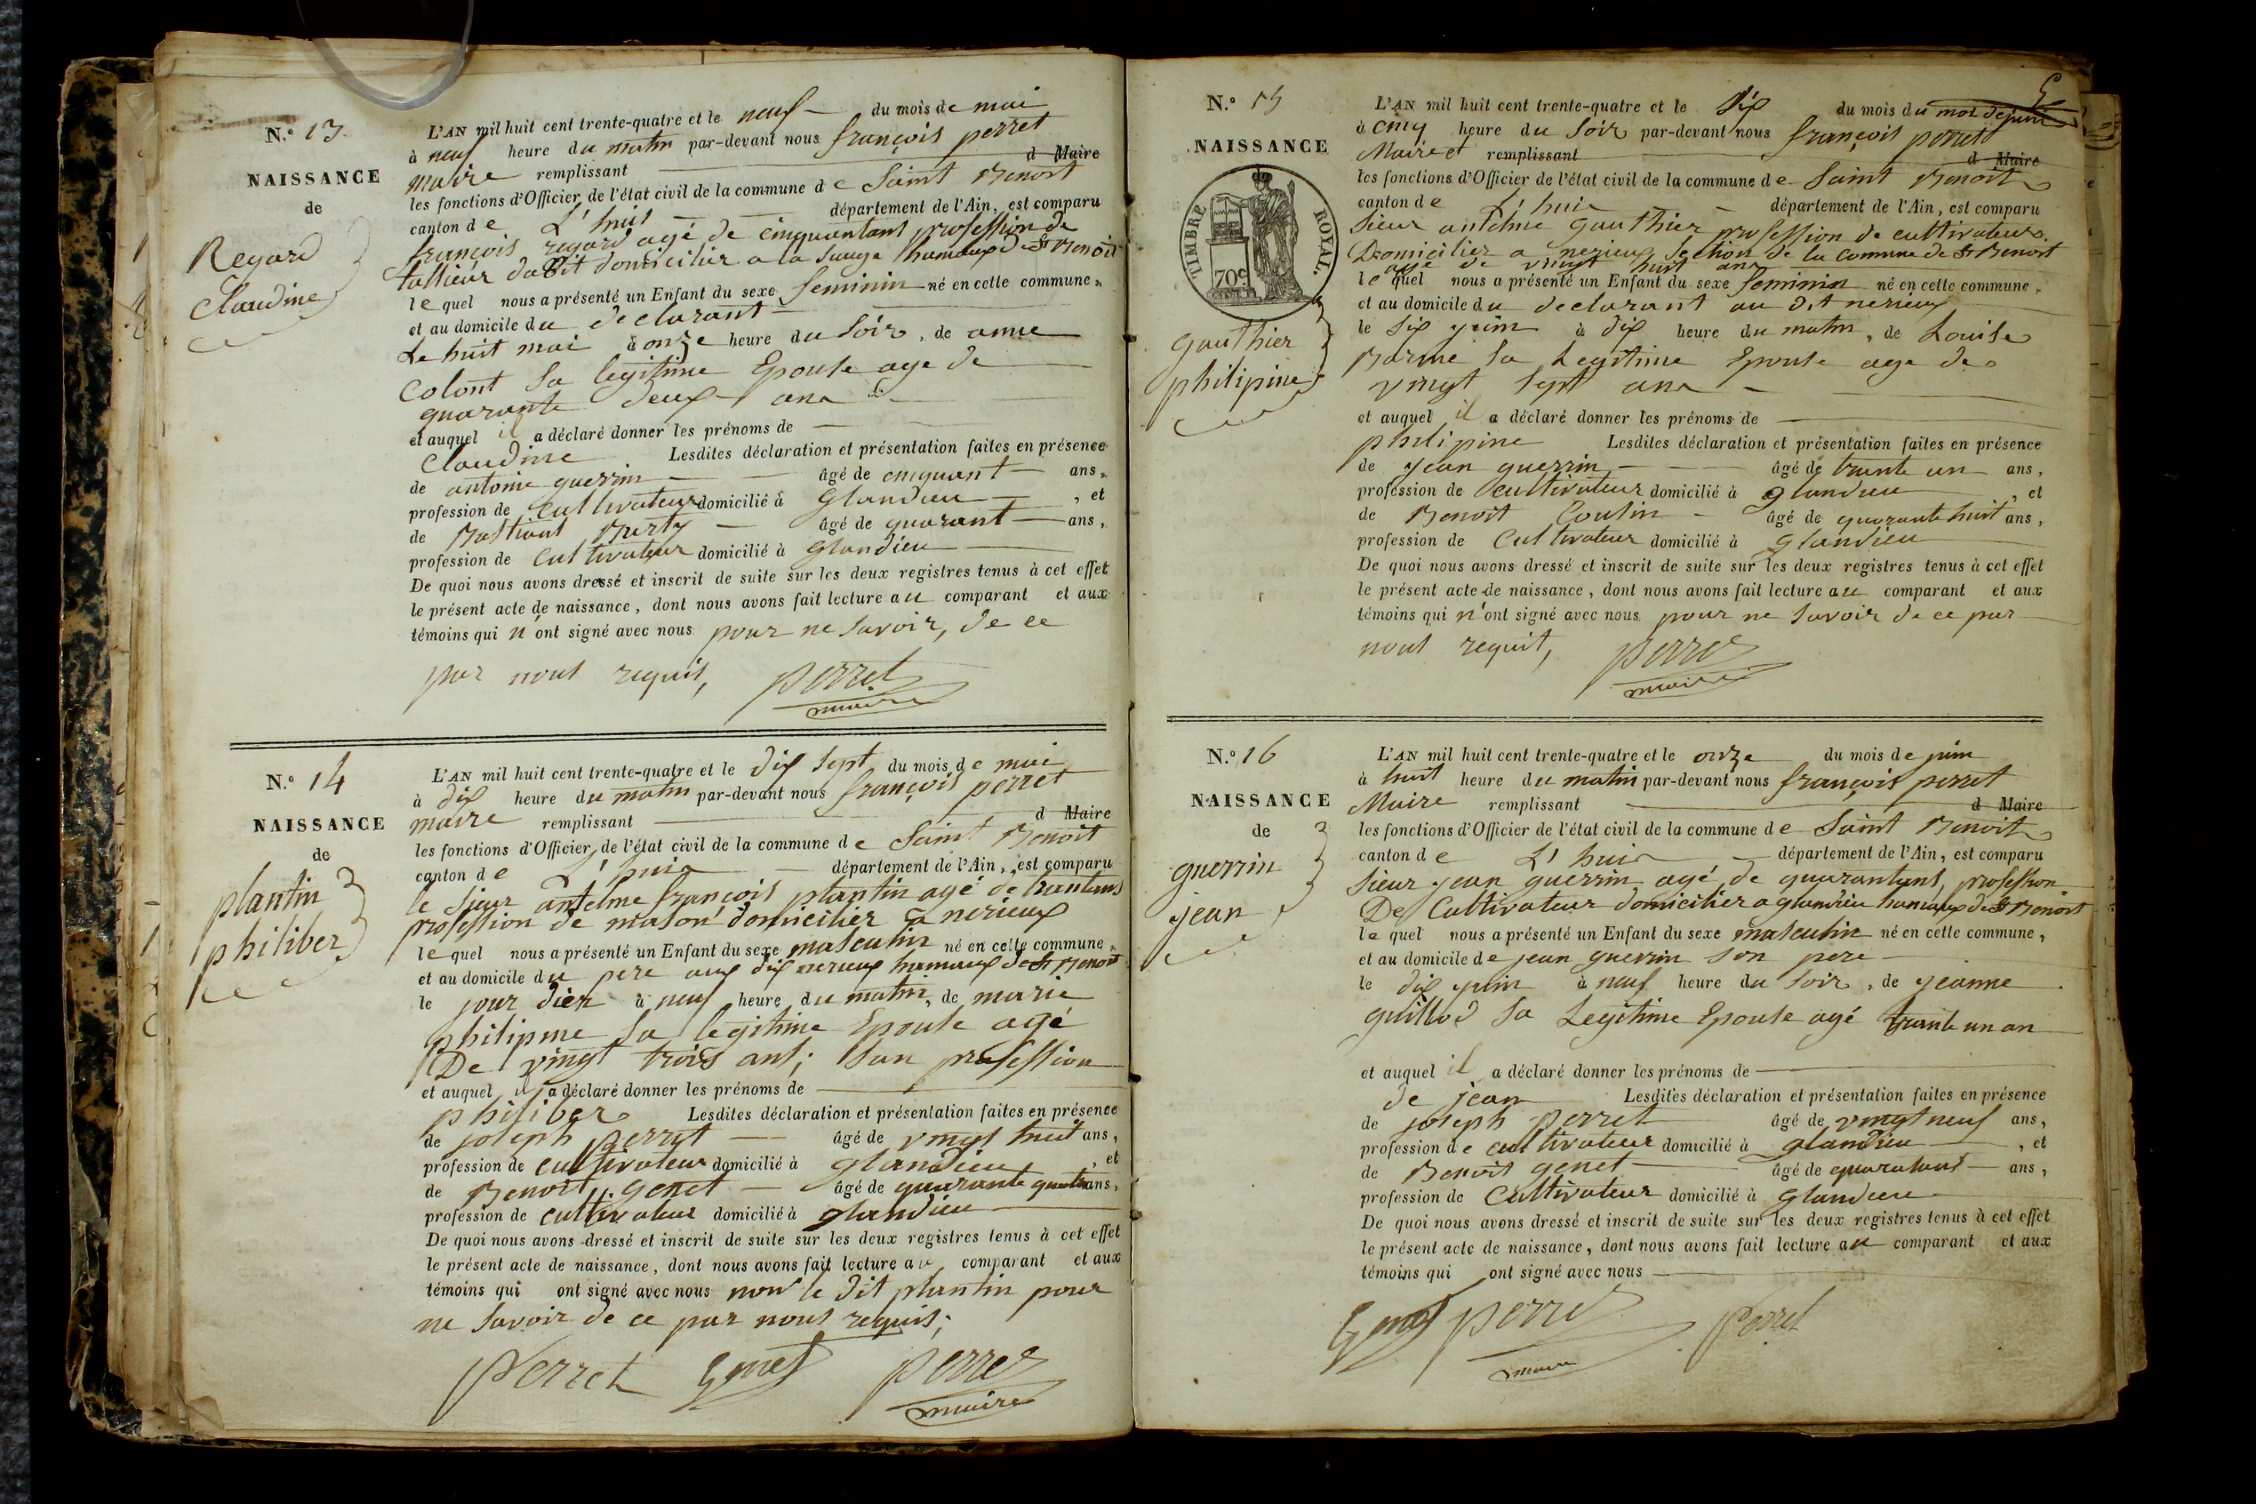 N.° 13
NAISSANCE
de
Regard
Claudine
L'AN mil huit cent trente-quatre et le neuf du mois de mai
à neuf heure du matin par-devant nous françois perret
maire remplissant d Maire
les fonctions d'Officier de l'état civil de la commune de Saint Benoit
canton de L'huis département de l'Ain, est comparu
françois regard agé de cinquantans profession de
tallieur domicilier a la hamaux de St Benoit
lequel nous a présenté un Enfant du sexe feminin né en cette commune,
et au domicile du declarant
Le huit mai à onze heure du Soir, de anne
Colont Sa legitime Epouse age de
quarante deux ans
et auquel il a déclaré donner les prénoms de
Claudine Lesdites déclaration et présentation faites en présence
de antoine guerrin âgé de cinquant ans,
profession de cultivateur domicilié à Glandieu, et
de Bastiant âgé de quarant ans,
profession de cultivateur domicilié à Glandieu
De quoi nous avons dressé et inscrit de suite sur les deux registres tenus à cet effet
le présent acte de naissance, dont nous avons fait lecture au comparant et aux
témoins qui n'ont signé avec nous pour ne savoir, de ce
par nous requis,
perret
maire
N.° 14
NAISSANCE
de
plantin
philiber
L'AN mil huit cent trente-quatre et le dix sept du mois de mai
à dix heure du matin par-devant nous françois perret
maire remplissant d Maire
les fonctions d'Officier de l'état civil de la commune de Saint Benoit
canton de L'huis département de l'Ain, est comparu
le Sieur antelme françois plantin agé de trantans
profession de mason domicilier a nerieux
lequel nous a présenté un Enfant du sexe masculin né en cette commune,
et au domicile du pere aux dix nerieux hamaux de St Benoit
le jour dier à neuf heure du matin, de marie
philipine sa legitime Epouse agé
De vingt trois ans; san profession
et auquel il a déclaré donner les prénoms de
philiber Lesdites déclaration et présentation faites en présence
de joseph perret âgé de vingt huit ans,
profession de cultivateur domicilié à glandieu, et
de Benoit genet âgé de quarante quatre ans,
profession de cultivateur domicilié à glandieu
De quoi nous avons dressé et inscrit de suite sur les deux registres tenus à cet effet
le présent acte de naissance, dont nous avons fait lecture au comparant et aux
témoins qui ont signé avec nous non le dit plantin pour
ne savoir de ce par nous requis;
Perret Genet perret
maire
5
N.° 15
NAISSANCE
TIMBRE ROYAL.
70c
gauthier
philipine
L'AN mil huit cent trente-quatre et le dix du mois du moi de juin
à cinq heure du Soir par-devant nous françois perret
Maire et remplissant d Maire
les fonctions d'Officier de l'état civil de la commune de Saint Benoit
canton de L'huis département de l'Ain, est comparu
Sieur antelme gauthier profession de cultivateur
Domicilier a nerieux Section de la commune de St Benoit
agé de vingt huit ans
lequel nous a présenté un Enfant du sexe feminin né en cette commune,
et au domicile du declarant au dit nerieux
le dix juin à dix heure du matin, de Louise
sa Legitime Epouse age de
vingt sept ans
et auquel il a déclaré donner les prénoms de
philipine Lesdites déclaration et présentation faites en présence
de jean guerrin âgé de trante un ans,
profession de cultivateur domicilié à glandieu, et
de Benoit Cousin âgé de quarante huit ans,
profession de Cultivateur domicilié à glandieu
De quoi nous avons dressé et inscrit de suite sur les deux registres tenus à cet effet
le présent acte de naissance, dont nous avons fait lecture au comparant et aux
témoins qui n'ont signé avec nous pour ne savoir de ce par
nous requit,
perret
maire
N.° 16
NAISSANCE
de
guerrin
jean
L'AN mil huit cent trente-quatre et le onze du mois de juin
à huit heure du matin par-devant nous françois perret
Maire remplissant d Maire
les fonctions d'Officier de l'état civil de la commune de Saint Benoit
canton de L'huis département de l'Ain, est comparu
Sieur jean guerrin agé de quarantans, profession
De Cultivateur domicilier a glandieu hamaux de St Benoit
lequel nous a présenté un Enfant du sexe masculin né en cette commune,
et au domicile de jean guerrin son pere
le dix juin à neuf heure du Soir, de jeanne
guillod Sa Legitime Epouse agé trante un an
et auquel il a déclaré donner les prénoms de
de jean Lesdites déclaration et présentation faites en présence
de joseph perret âgé de vingt neuf ans,
profession de cultivateur domicilié à glandieu, et
de Benoit genet âgé de quarantant ans,
profession de Cultivateur domicilié à glandieu
De quoi nous avons dressé et inscrit de suite sur les deux registres tenus à cet effet
le présent acte de naissance, dont nous avons fait lecture au comparant et aux
témoins qui ont signé avec nous
Genet perret Perret
maire